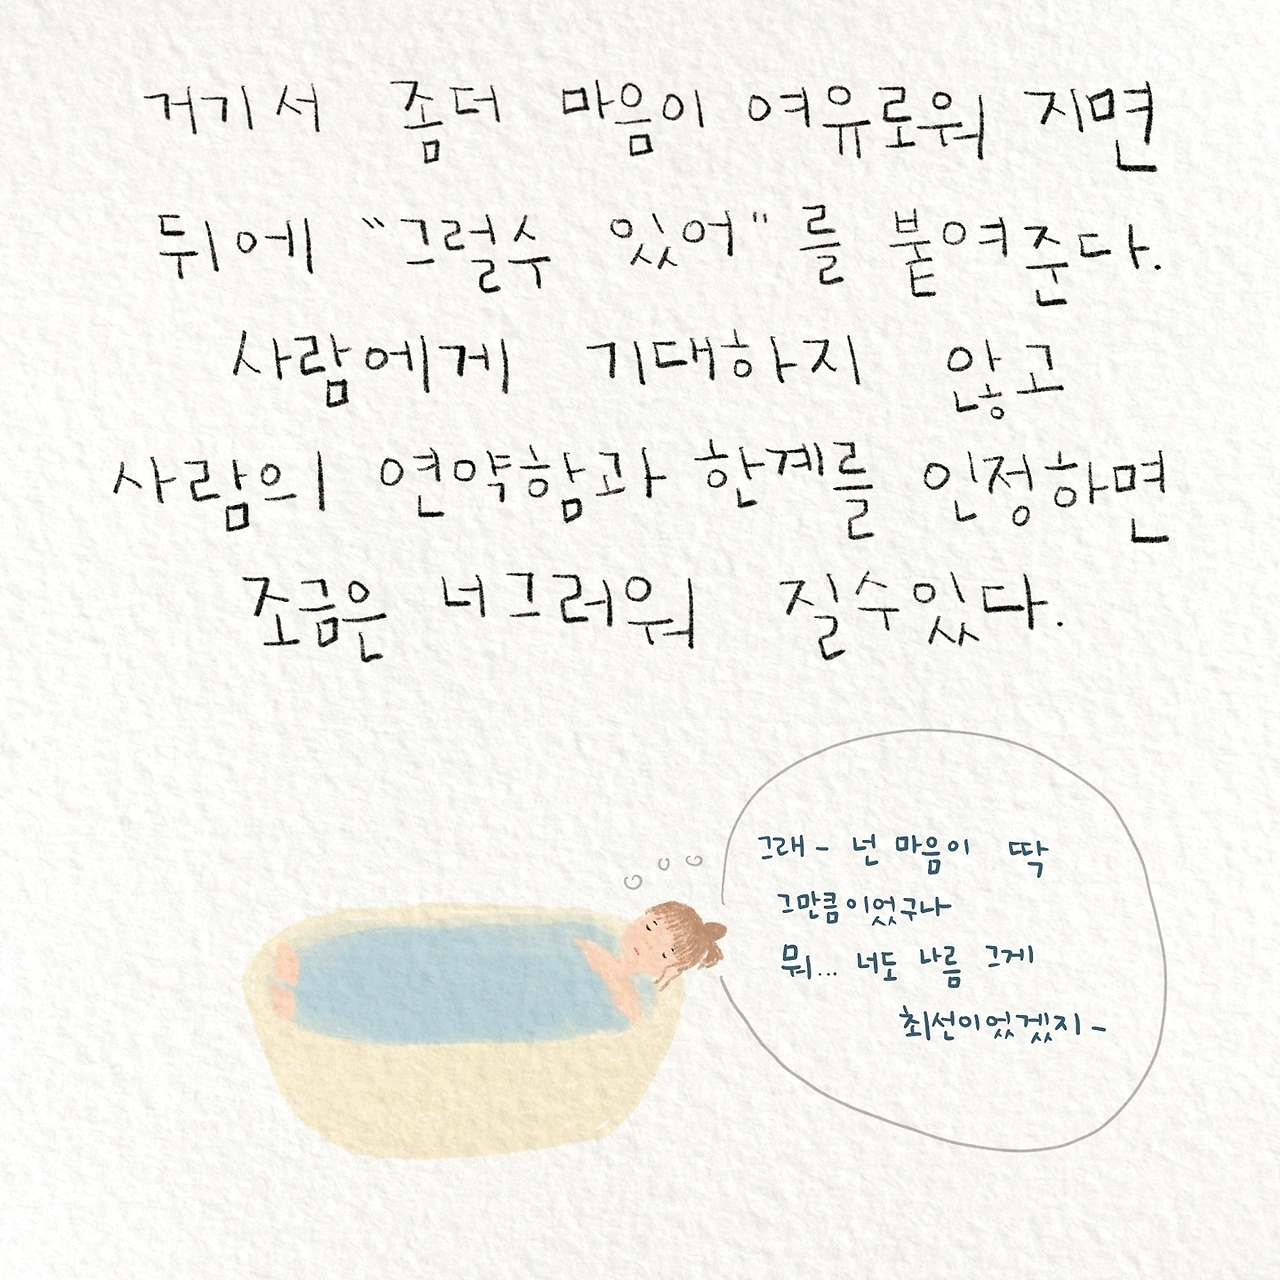 거기서 좀더 마음이 여유로워 지면
뒤에 "그럴수 있어"를 붙여준다.
사람에게 기대하지 않고
사람의 연약함과 한계를 인정하면
조금은 너그러워 질수있다.
그래- 넌 마음이 딱
그만큼이었구나
뭐... 너도 나름 그게
최선이었겠지-